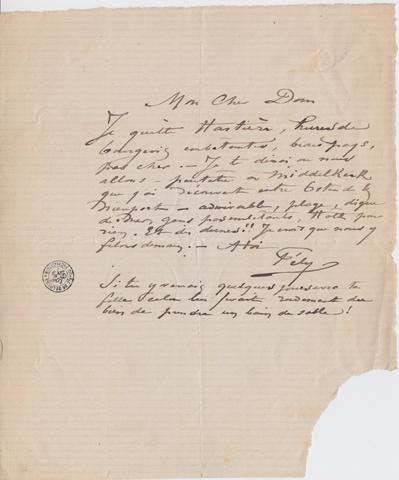 Mon Cher Dom
Je quitte Hastière, hures de
bourgeois embêtantes, beau pays,
pas cher. — Je te dirai où nous
allons. — peutêtre à Middelkerk
que j'ai découvert entre Ostende &
Nieuport — admirable, plage, digue
de mer, gens pas embêtants, Hotel pour
rien. Et des dunes!! Je crois que nous y
filons demain. — A toi
Fély
Si tu y venais quelques jours avec ta
fille cela lui ferait rudement du
bien de prendre un bain de sable!